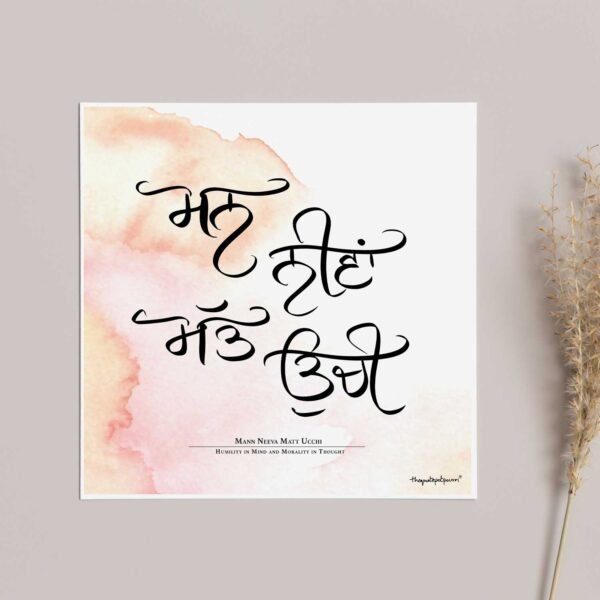 ਮਨ
ਨੀਵਾਂ
ਮੱਤ
ਉਚੀ
Mann Neeva Matt Ucchi
Humility in Mind and Morality in Thought